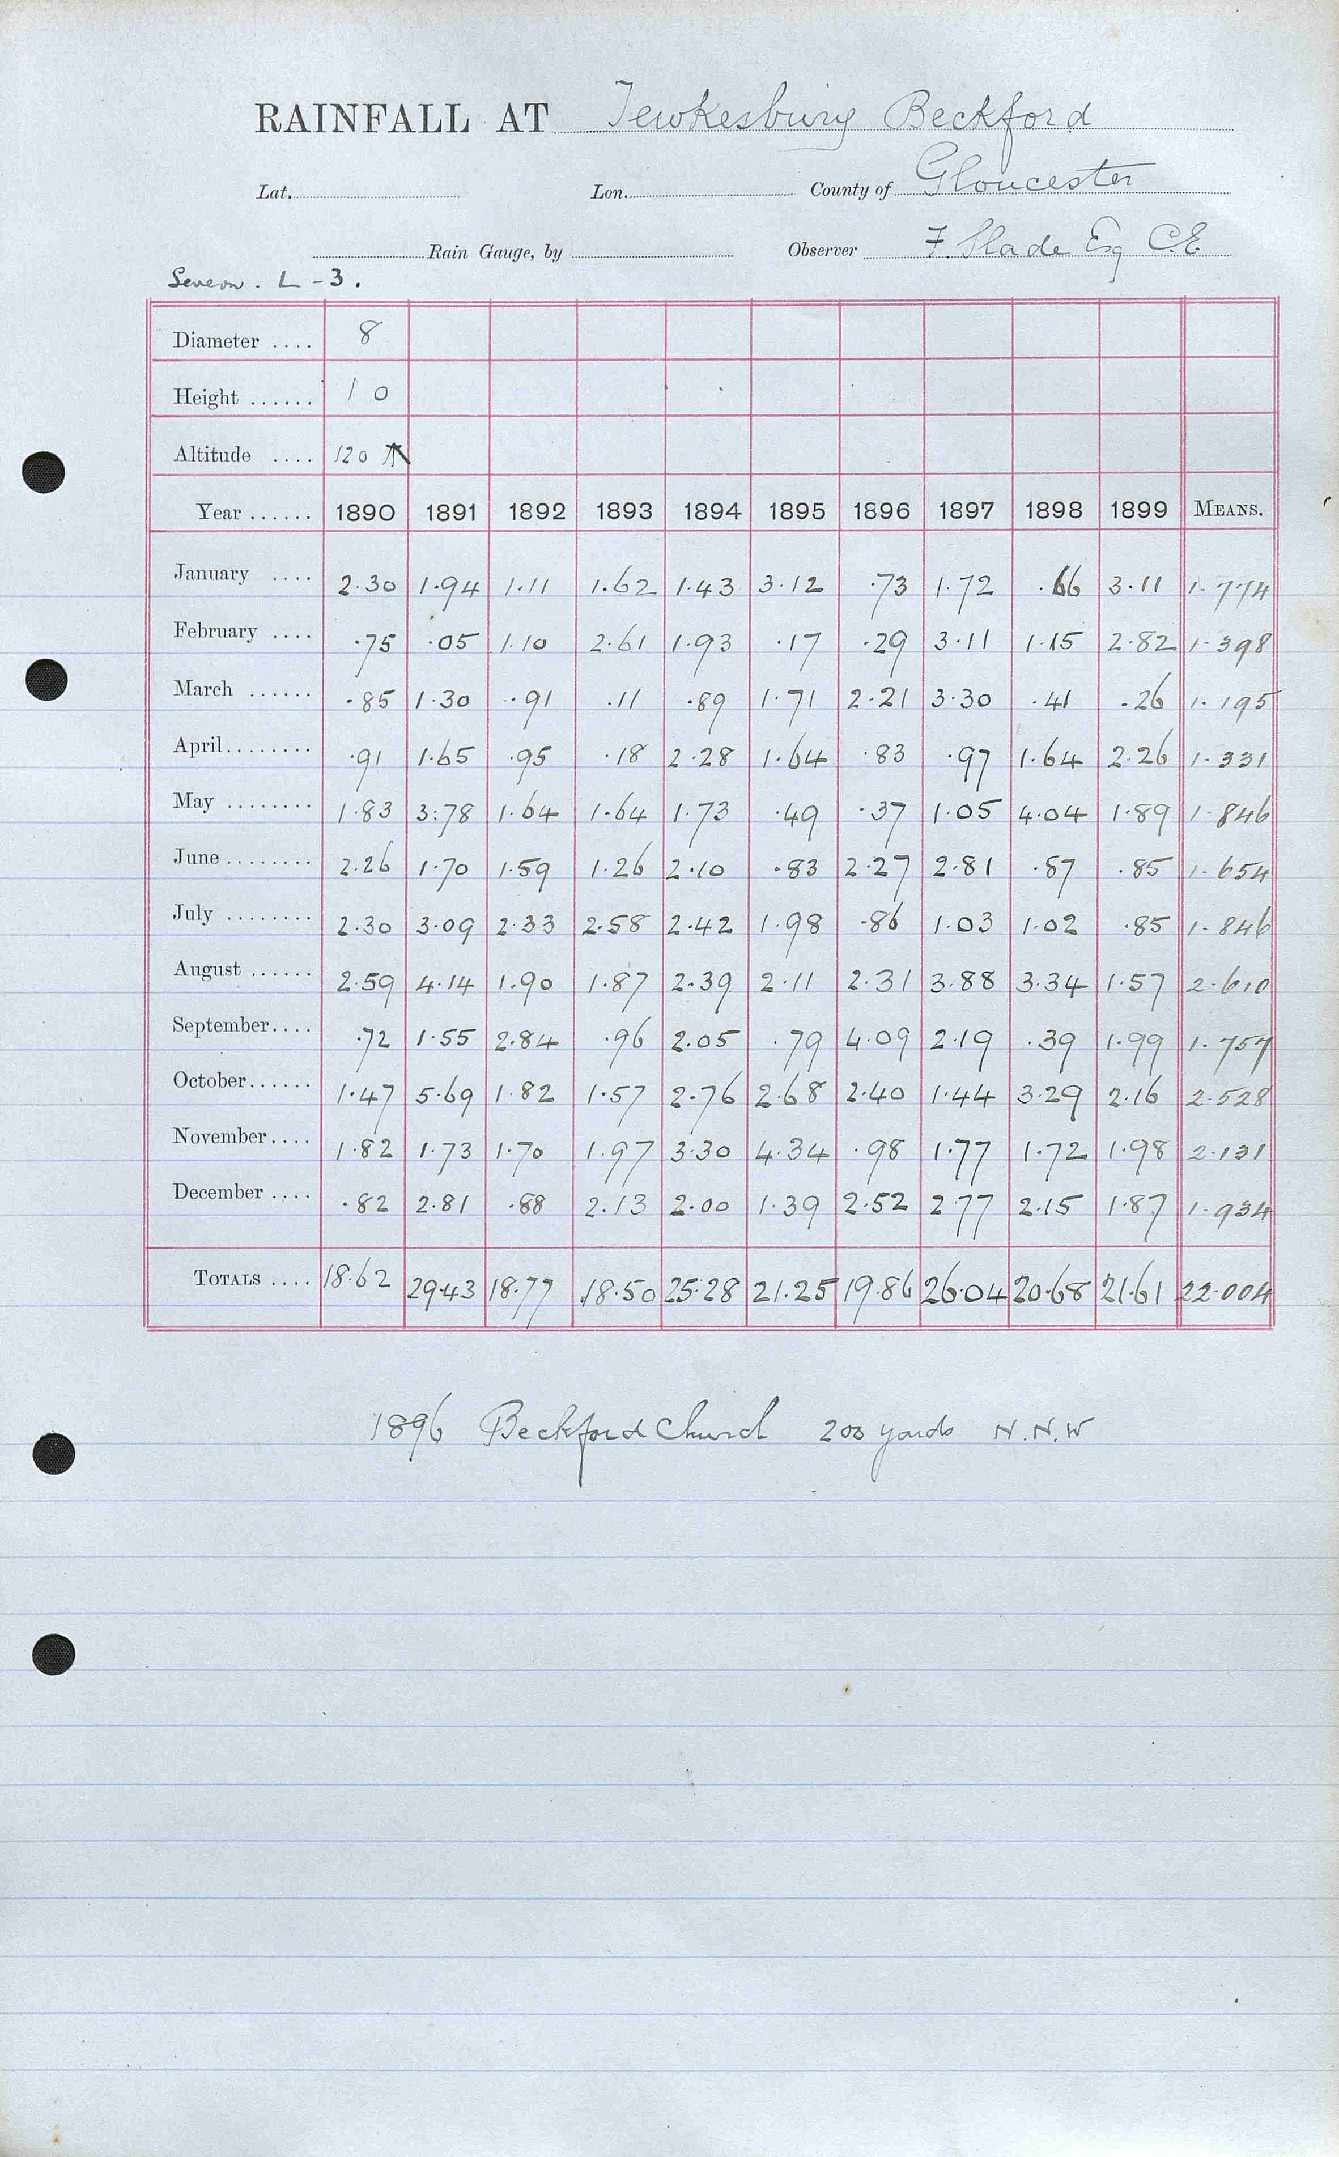 RAINFALL AT Tewkesbury Beckford
Lat. Lon. County of Gloucester
Rain Gauge, by Observer F. Slade Esq C.E.
Severn. L - 3.
Diameter .... 8
Height ...... 10
Altitude .... 120
Year ...... 1890 1891 1892 1893 1894 1895 1896 1897 1898 1899 MEANS.
January .... 2.30 1.94 1.11 1.62 1.43 3.12 .73 1.72 .66 3.11 1.774
February .... .75 .05 1.10 2.61 1.93 .17 .29 3.11 1.15 2.82 1.398
March ...... .85 1.30 .91 .11 .89 1.71 2.21 3.30 .41 .26 1.195
April ........ .91 1.65 .95 .18 2.28 1.64 .83 .97 1.64 2.26 1.331
May ........ 1.83 3.78 1.64 1.64 1.73 .49 .37 1.05 4.04 1.89 1.846
June ........ 2.26 1.70 1.59 1.26 2.10 .83 2.27 2.81 .87 .85 1.654
July ........ 2.30 3.09 2.33 2.58 2.42 1.98 .86 1.03 1.02 .85 1.846
August ...... 2.59 4.14 1.90 1.87 2.39 2.11 2.31 3.88 3.34 1.57 2.610
September .... .72 1.55 2.84 .96 2.05 .79 4.09 2.19 .39 1.99 1.757
October ...... 1.47 5.69 1.82 1.57 2.76 2.68 2.40 1.44 3.29 2.16 2.528
November .... 1.82 1.73 1.70 1.97 3.30 4.34 .98 1.77 1.72 1.98 2.131
December .... .82 2.81 .88 2.13 2.00 1.39 2.52 2.77 2.15 1.87 1.934
TOTALS .... 18.62 29.43 18.77 18.50 25.28 21.25 19.86 26.04 20.68 21.61 22.004
1896 Beckford Church 200 yards N.N.W